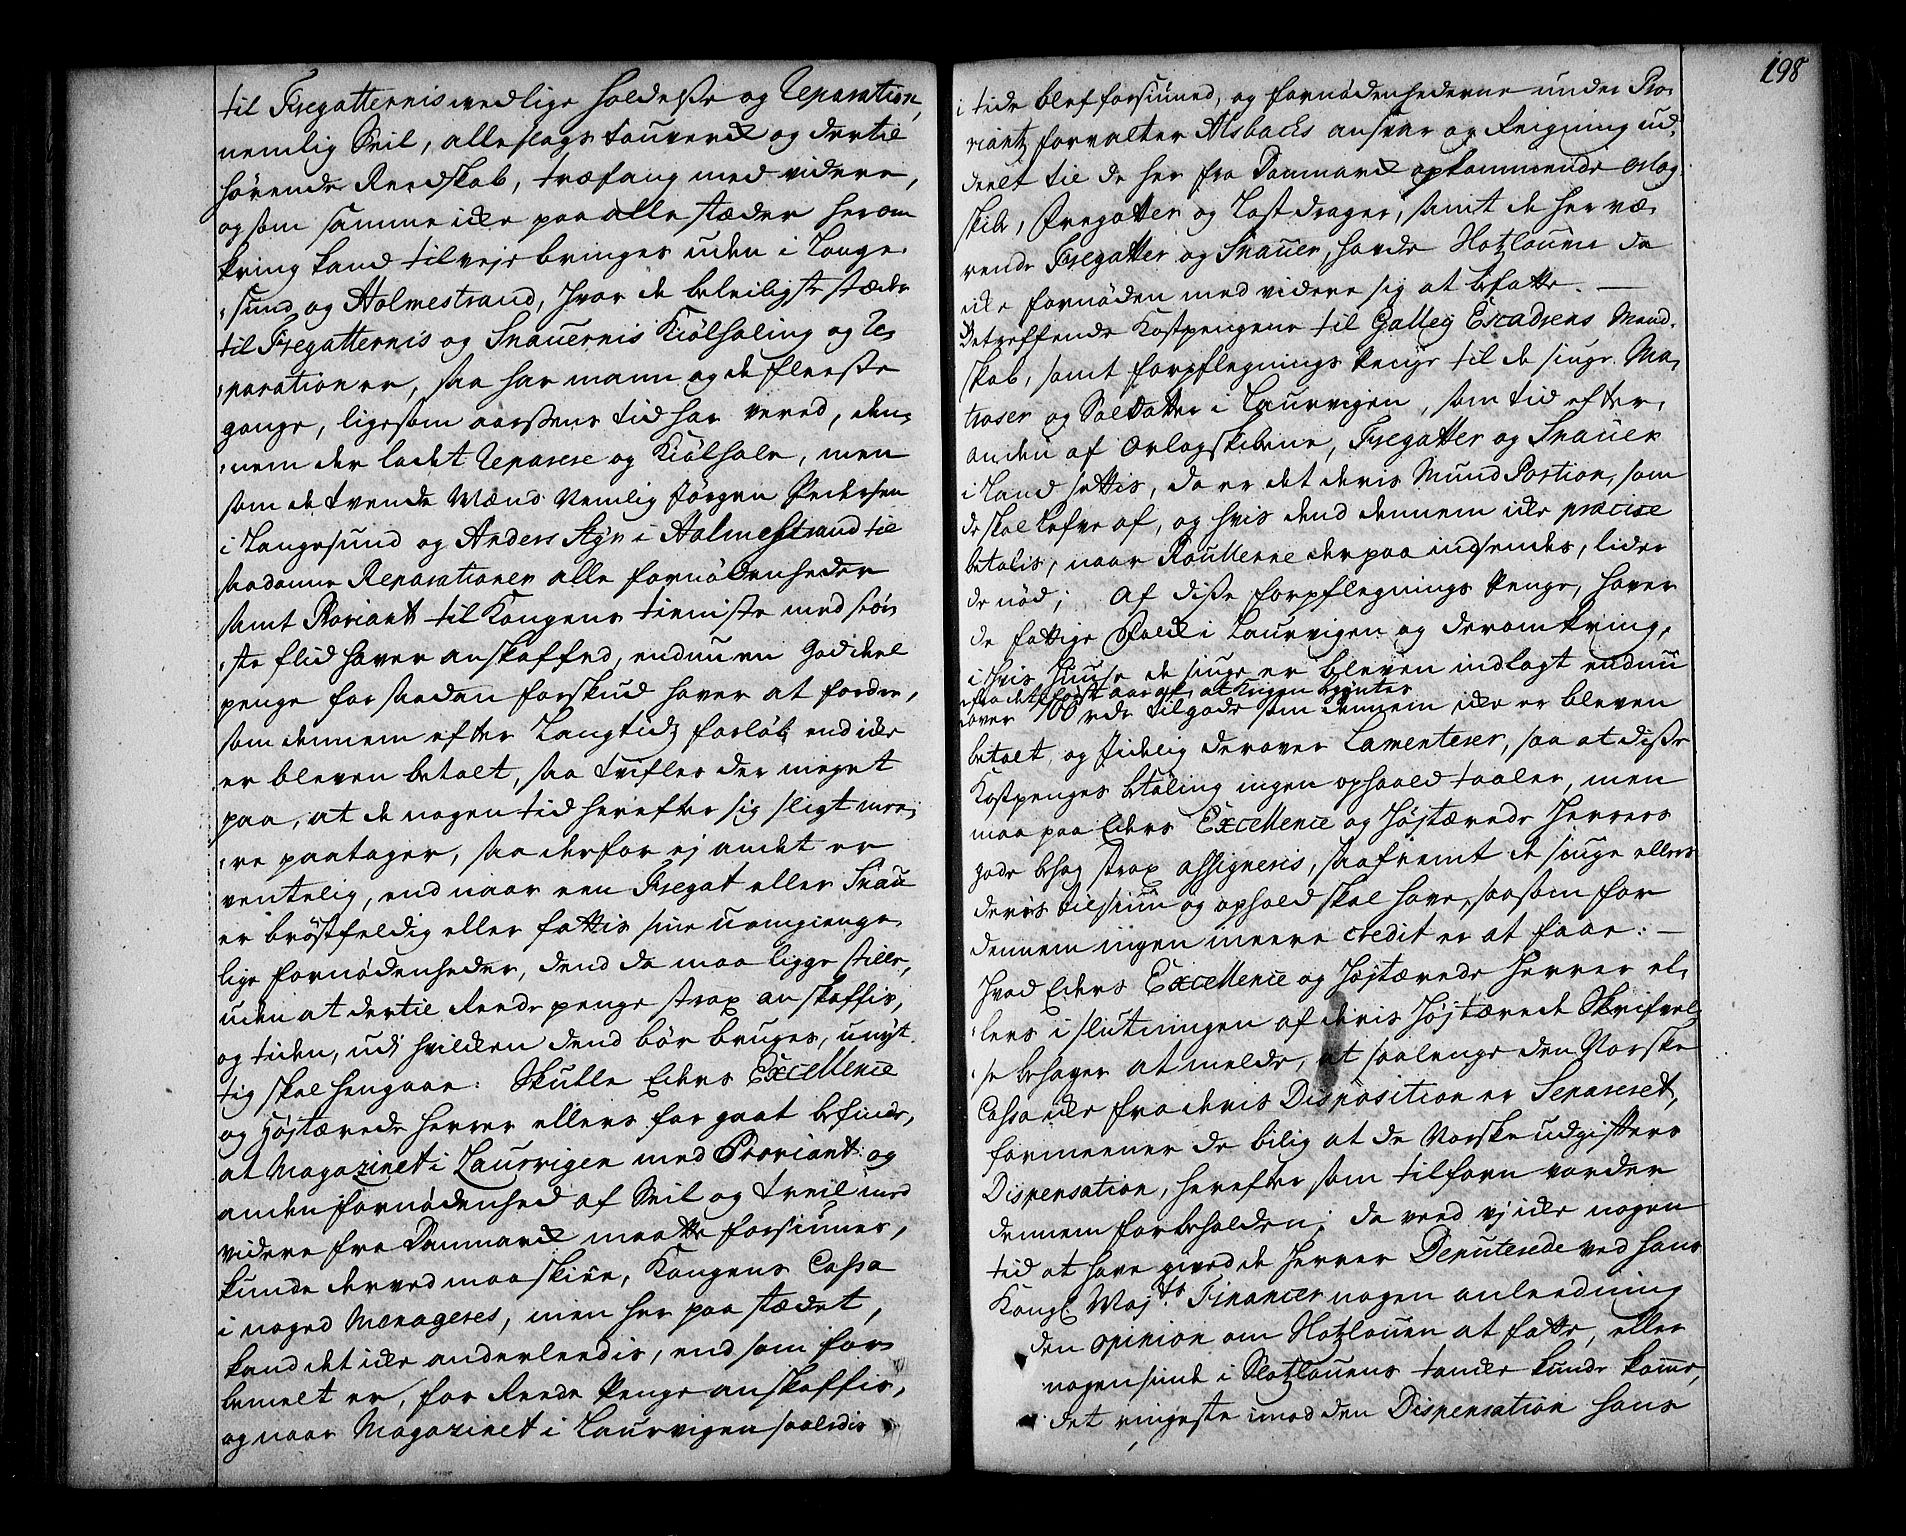 til Fregatternis vedlige holdelse og Reparation,
nemlig Seil, alle slags Touverck og dertil
hørende Reedskab, træfang med videre,
og som samme icke paa alle stæder her om
kring kand tilveje bringes uden i Lange
sund og Holmestrand, hvor de beleiligste stæder
til Fregatternis og Snauernis Kiølhaling og Re
parationer, saa har mann og de fleeste
gange, ligesom aarssens tid har vered, den
nem der ladet Reparere og Kiølhale, men
som de tvende Mænd Nemlig Jørgen Pedersen
i Langesund og Anders Bye i Holmestrand til
saadanne Reparationer alle fornødenheder
samt Proviant til Kongens tieniste med stør
ste flid haver anskaffed, endnu en God deel
penge for saadan forskud haver at fordre,
som dennem efter Langtids forløb end icke
er bleven betalt, saa tvifles der meget
paa, at de nogen tid herefter sig sligt mee
re paatager, saa derfor ej andet er
ventelig, end naar een Fregat eller Snau
er brøstfeldig eller fattis sine uomgienge
lige fornødenheder, dend da maa ligge stille,
uden at dertil Reede penge strax anskaffis,
og tiden, udj hvilcken dend bør bruges, unøt
tig skal hengaae: Skulle Eders Excellence
og Højtærede Herrer ellers for gaat befinde,
at Magazinet i Laurvigen med Proviant og
anden fornødenhed af Seil og treil med
videre fra Danmarck maatte forsiunes,
kunde derved maaskiee, Kongens Cassa
i noged menageres, men her paa stædet,
kand det icke anderleedis, end som for
bemelt er, for Reede Penge anskaffis,
og naar Magazinet i Laurvigen saaledis
198
i tide blef forsiuned, og fornødenhederne under Pro
viantz forvalter Alsbachs ansvar og Reigning ud
deelt til de her fra Danmarck opkommende Orlog
skibe, Fregatter og Lastdrager, samt de her væ
rende Fregatter og Snauer, havde Slotzlouen da
icke fornøden med videre sig at befatte. —
Betreffende Kostpengene til Galley Escadrens Mand
skab, samt forpflegnings Penge til de siuge Ma
troser og Soldatter i Laurvigen, som tid efter
anden af Orlogskibene, Fregatter og Snauer
i Land settis, da er det deris Mund Portion, som
de skal lefve af, og hvis dend dennem icke præcise
betalis, naar Roullerne derpaa indsendes, lider
de nød; Af disse forpflegnings Penge, haver
de fattige Folck i Laurvigen og deromkring,
i hvis Huuse de siuge er bleven indlagt endnu
fra det først aar af, at Krigen begynte
over 700 rdr tilgode som dennem icke er bleven
betalt, og jidelig derover Lamenterer, saa at disse
Kostpenges betaling ingen ophaald taaler, men
maa paa Eders Excellence og Højtærede Herrers
gode behag strax assigneris, saafremt de siuge ellers
deris tilsiun og ophold skal have, saasom for
dennem ingen meere credit er at faae: —
Hvad Eders Excellence og Højtærede Herrer el
lers i slutningen af deris Højtærede Skrifvel
se behager at melde, at saalenge den Norske
Cassa icke fra deris Disposition er Separeret,
formeener de bilig at de Norske udgifters
Dispensation, herefter som tilforn vorder
dennem forbeholden; da veed vj icke nogen
tid at have gived de Herrer Deputerede ved Hans
Kongl. Maj.ts Financer nogen anleedning
den opinion om Slotzlouen at fatte, eller
nogensinde i Slotzlouens tancke kunde komme,
det ringeste imod den Dispensation Hans